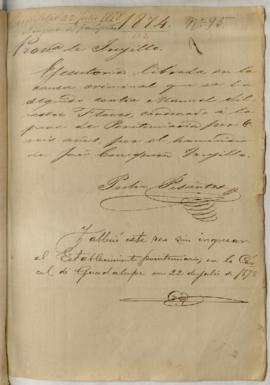 1874. Nº 95
Prova de Trujillo.
Ejecutoria librada en la
causa criminal que se ha
seguido contra Manuel
Flores, condenado á la
pena de Penitenciaría por
seis años, por el homicidio
de José Trujillo.
Pedro
Falleció este reo sin ingresar
al Establecimiento penitenciario, en la Cár
cel de Guadalupe en 22 de julio de